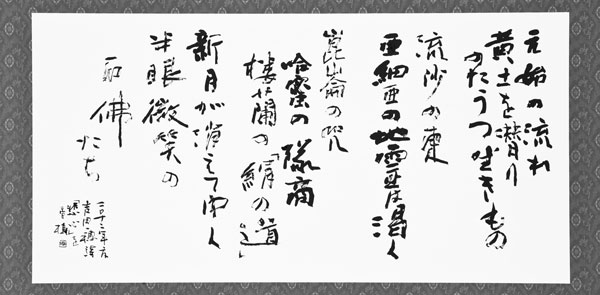 元始の流れ
黄土を潜り
のたうつ生きもの
流沙の東
亜細亜の地霊は渇く
崑崙の咒
哈密の隊商
楼蘭の「絹の道」
新月が消えて
半眼微笑の
石佛たち